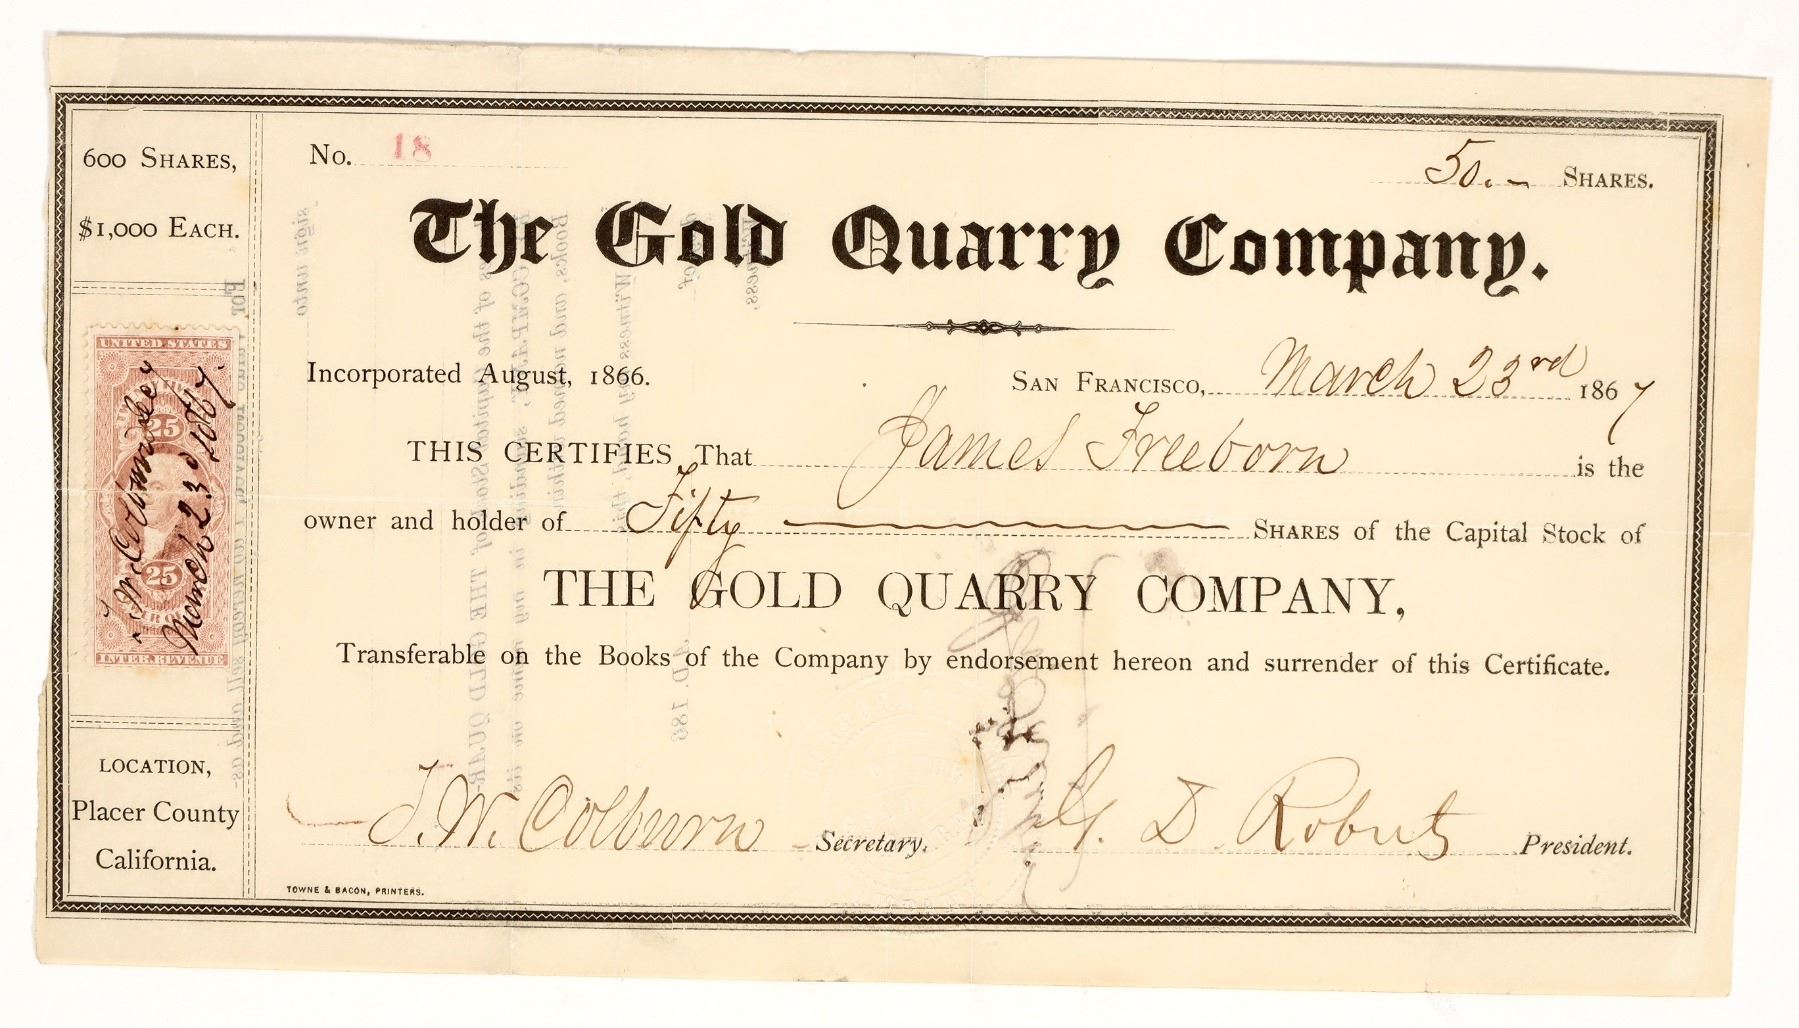 600 SHARES,
$1,000 EACH.
UNITED STATES
25
25
INTER. REVENUE
T. W. Colburn Secy
March 23d 1867.
LOCATION,
Placer County
California.
No. 18
50.- SHARES.
The Gold Quarry Company.
Incorporated August, 1866.
SAN FRANCISCO, March 23rd 1867
THIS CERTIFIES That James Freeborn is the
owner and holder of Fifty SHARES of the Capital Stock of
THE GOLD QUARRY COMPANY,
Transferable on the Books of the Company by endorsement hereon and surrender of this Certificate.
T. W. Colburn Secretary.
G. D. Roberts President.
TOWNE & BACON, PRINTERS.